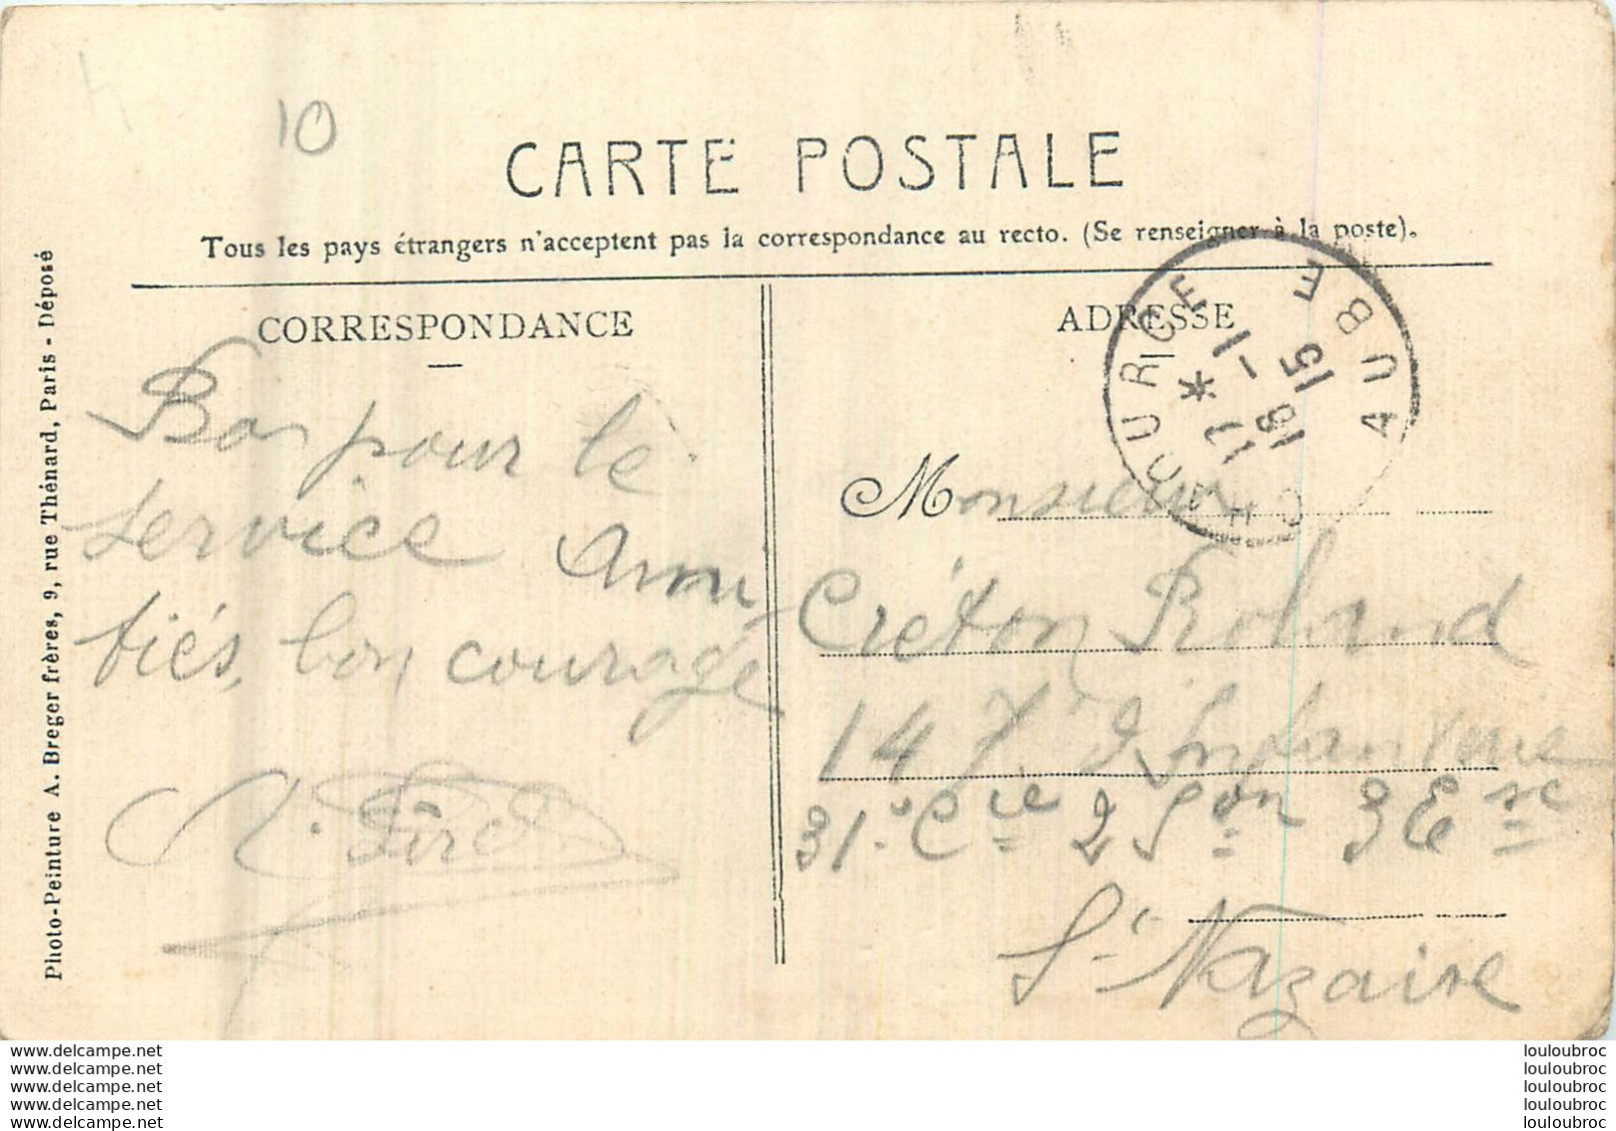 10
CARTE POSTALE
Tous les pays étrangers n'acceptent pas la correspondance au recto. (Se renseigner à la poste).
CORRESPONDANCE
Bon pour le
service Ami-
tiés, bon courage
ADRESSE
CHAOURCE
17 - 1
15
AUBE
Monsieur
Créton Roland
147e d'Infanterie
31e Cie 2 Son 3 Ese
St Nazaire
Photo-Peinture A. Breger frères, 9, rue Thénard, Paris - Déposé
www.delcampe.net
www.delcampe.net
www.delcampe.net
www.delcampe.net
www.delcampe.net
louloubroc
louloubroc
louloubroc
louloubroc
louloubroc